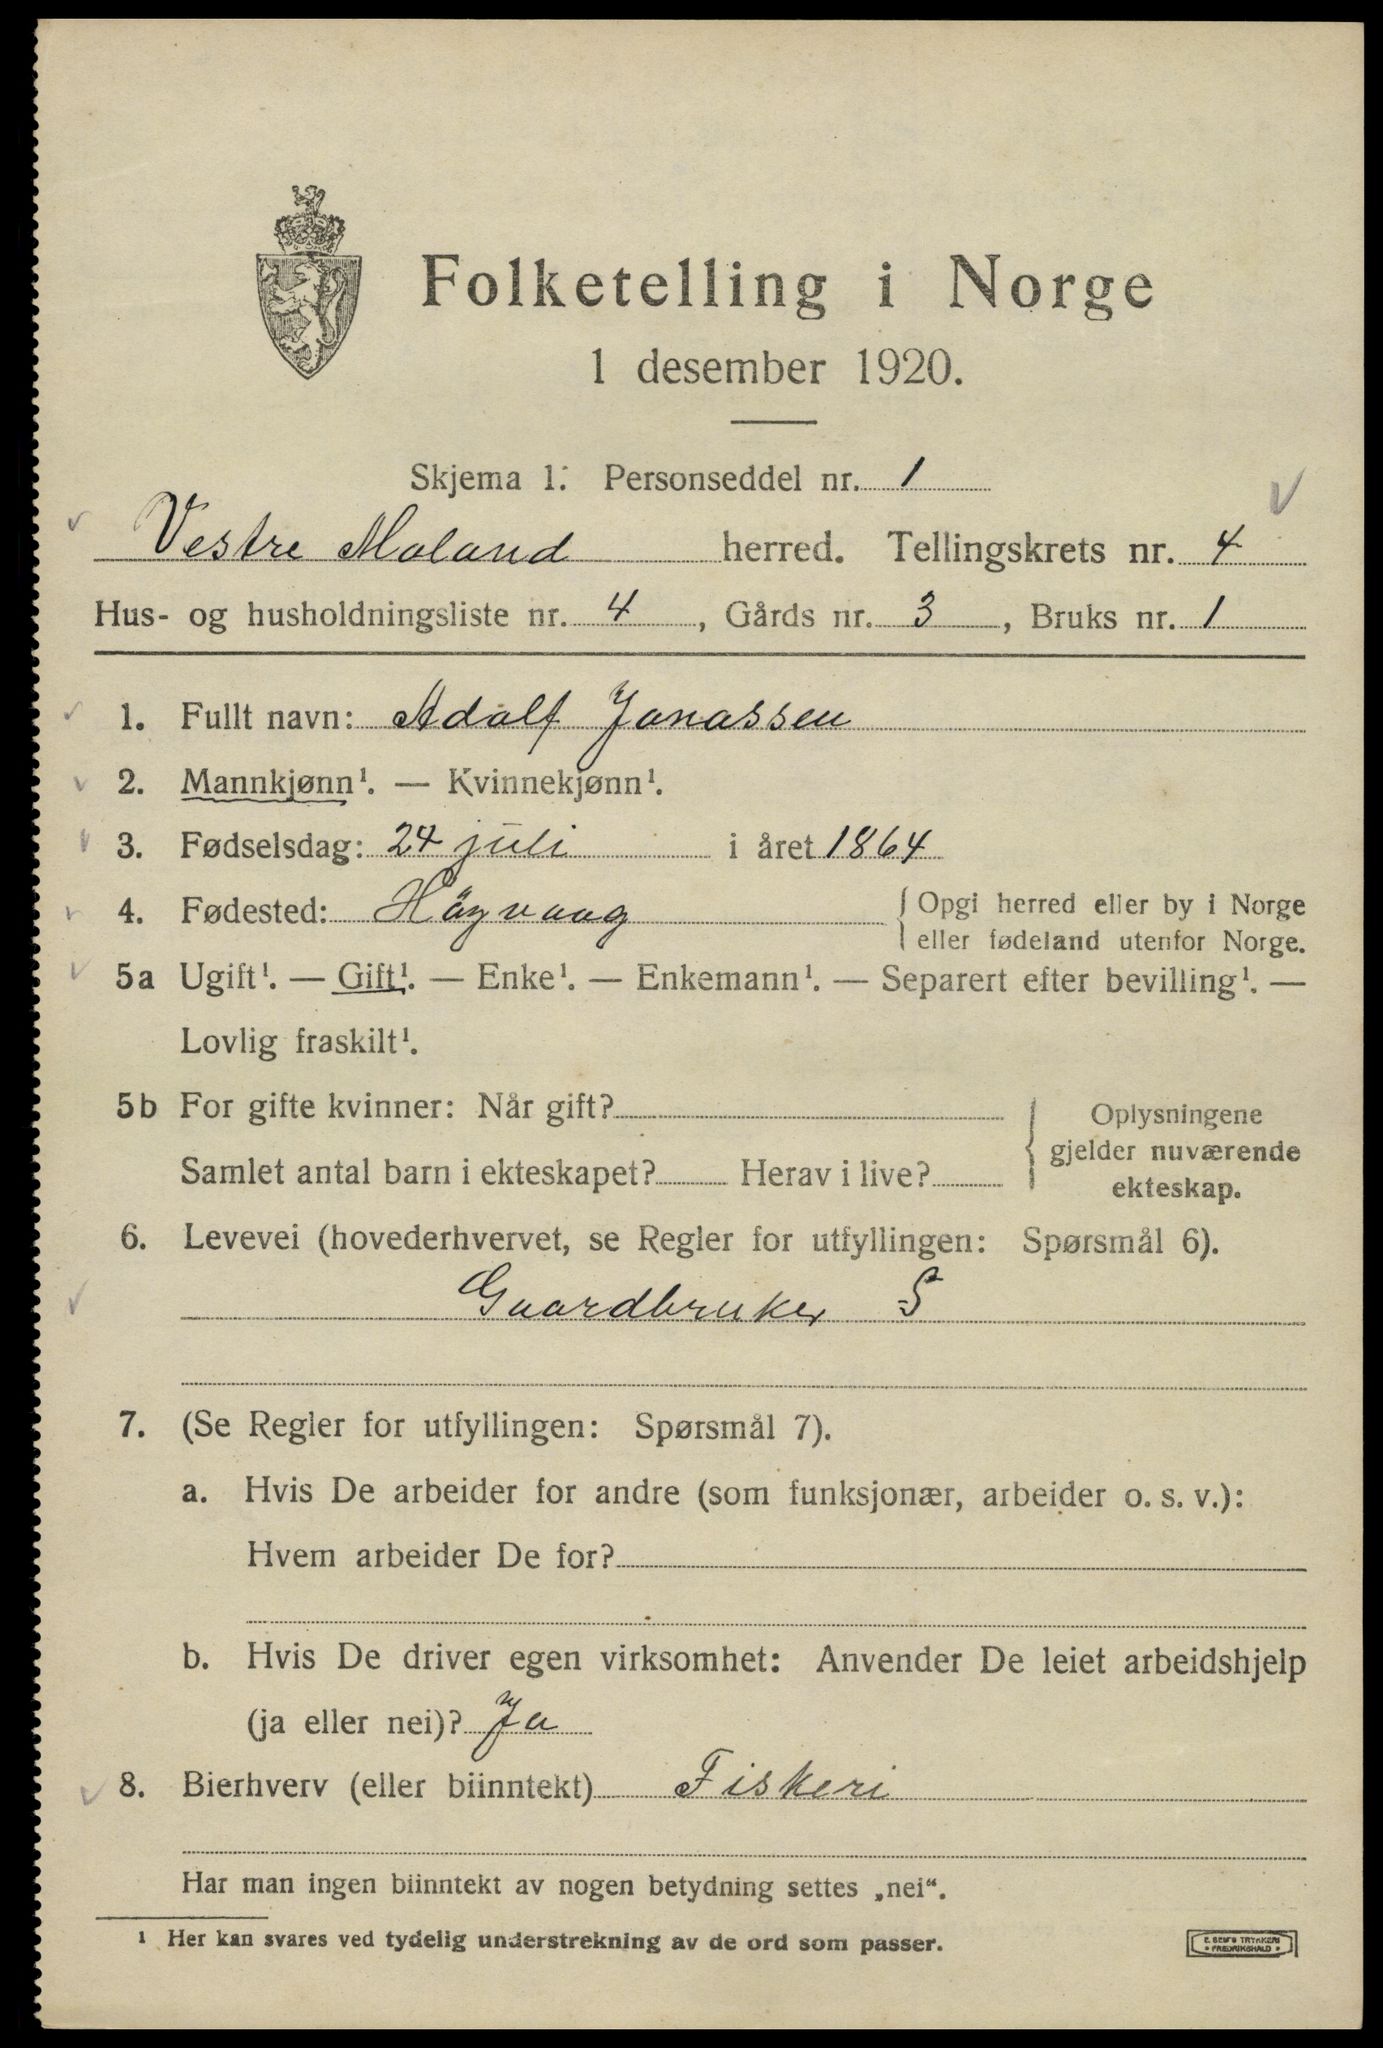 Folketelling i Norge
1 desember 1920.
Skjema 1. Personseddel nr. 1
Vestre Moland herred. Tellingskrets nr. 4
Hus- og husholdningsliste nr. 4, Gårds nr. 3, Bruks nr. 1
1. Fullt navn: Adolf Jonassen
2. Mannkjønn¹. — Kvinnekjønn¹.
3. Fødselsdag: 24 juli i året 1864
4. Fødested: Høgvaag { Opgi herred eller by i Norge
eller fødeland utenfor Norge.
5a Ugift¹. — Gift¹. — Enke¹. — Enkemann¹. — Separert efter bevilling¹. —
Lovlig fraskilt¹.
5b For gifte kvinner: Når gift? Oplysningene
gjelder nuværende
Samlet antal barn i ekteskapet? Herav i live? ekteskap.
6. Levevei (hovederhvervet, se Regler for utfyllingen: Spørsmål 6).
Gaardbruker S
7. (Se Regler for utfyllingen: Spørsmål 7).
a. Hvis De arbeider for andre (som funksjonær, arbeider o. s. v.):
Hvem arbeider De for?
b. Hvis De driver egen virksomhet: Anvender De leiet arbeidshjelp
(ja eller nei)? Ja
8. Bierhverv (eller biinntekt) Fiskeri
Har man ingen biinntekt av nogen betydning settes „nei“.
¹ Her kan svares ved tydelig understrekning av de ord som passer.
TRYKKERI
FREDRIKSHALD